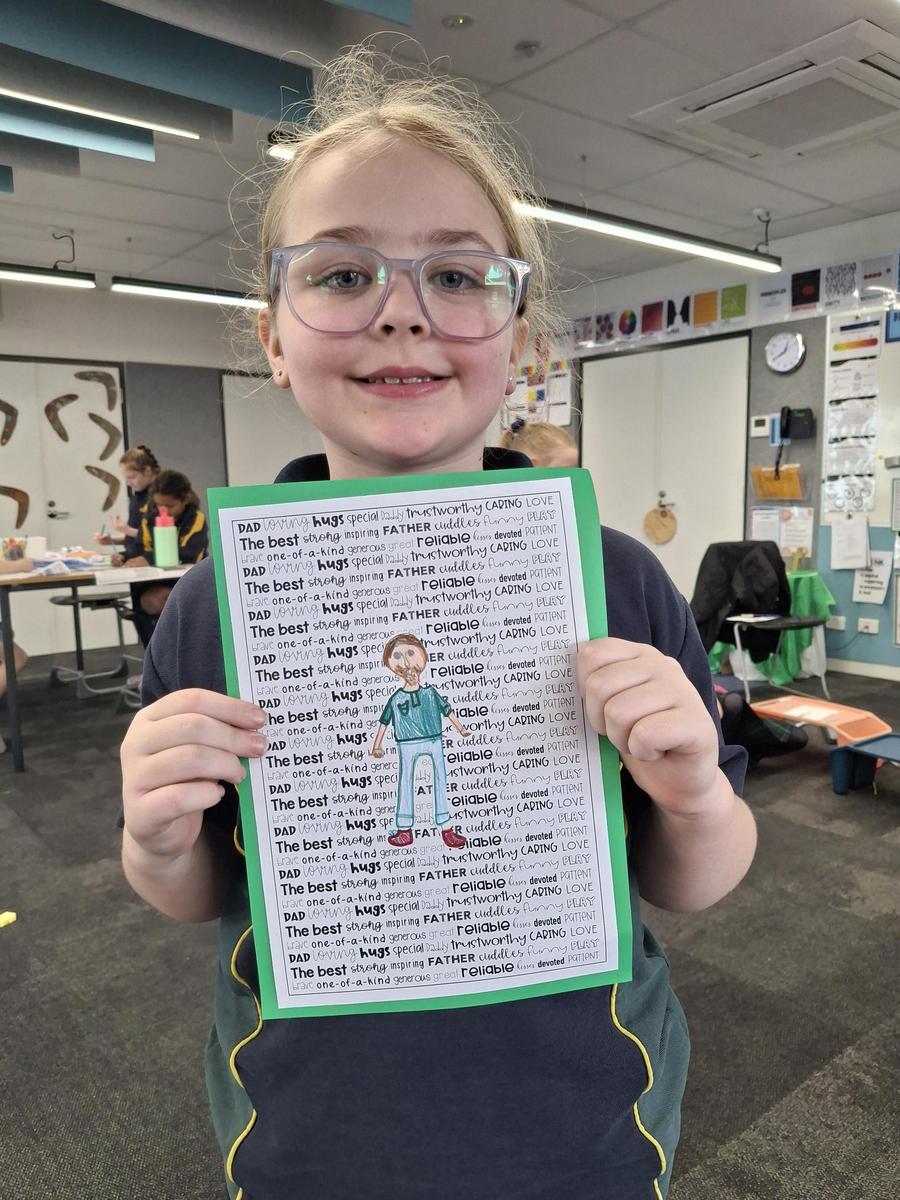 DAD loving hugs special Daddy trustworthy CARING LOVE
The best strong inspiring FATHER cuddles funny PLAY
brave one-of-a-kind generous great reliable kisses devoted PATIENT
DAD loving hugs special Daddy trustworthy CARING LOVE
The best strong inspiring FATHER cuddles funny PLAY
brave one-of-a-kind generous great reliable kisses devoted PATIENT
DAD loving hugs special Daddy trustworthy CARING LOVE
The best strong inspiring FATHER cuddles funny PLAY
brave one-of-a-kind generous reliable kisses devoted PATIENT
DAD loving hugs special trustworthy CARING LOVE
The best strong inspiring cuddles funny PLAY
brave one-of-a-kind generous reliable kisses devoted PATIENT
DAD loving hugs special trustworthy CARING LOVE
best strong inspiring cuddles funny PLAY
one-of-a-kind reliable kisses devoted PATIENT
loving hugs trustworthy CARING LOVE
The best strong inspiring cuddles funny PLAY
brave one-of-a-kind reliable kisses devoted PATIENT
DAD loving hugs special trustworthy CARING LOVE
The best strong inspiring cuddles funny PLAY
brave one-of-a-kind generous reliable kisses devoted PATIENT
DAD loving hugs special trustworthy CARING LOVE
The best strong inspiring FATHER cuddles funny PLAY
brave one-of-a-kind generous great reliable kisses devoted PATIENT
DAD loving hugs special Daddy trustworthy CARING LOVE
The best strong inspiring FATHER cuddles funny PLAY
brave one-of-a-kind generous great reliable kisses devoted PATIENT
DAD loving hugs special Daddy trustworthy CARING LOVE
The best strong inspiring FATHER cuddles funny PLAY
brave one-of-a-kind generous great reliable kisses devoted PATIENT
DAD loving hugs special Daddy trustworthy CARING LOVE
The best strong inspiring FATHER cuddles funny PLAY
brave one-of-a-kind generous great reliable kisses devoted PATIENT